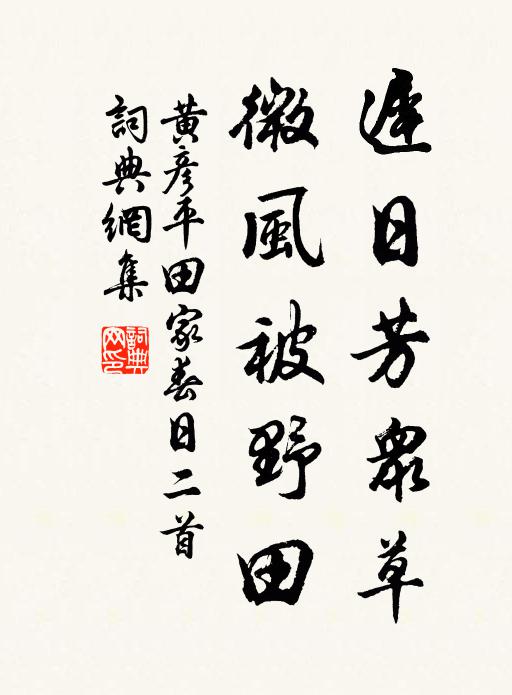 遲日芳衆草
微風被野田
黃彥平田家春日二首
詞典網集
詞典
网印